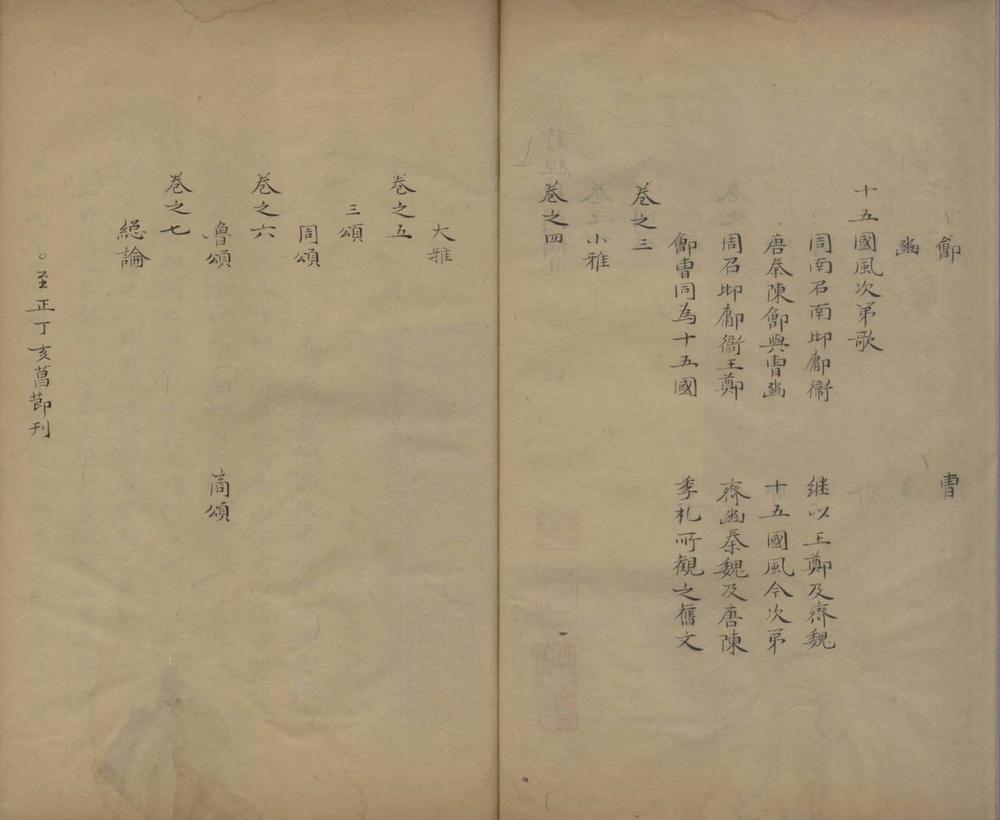 鄶 曹
豳
十五國風次第歌
周南召南邶鄘衛 継以王鄭及齊魏
唐秦陳鄶與曹豳 十五國風今次第
周召邶鄘衞王鄭 齊豳秦魏及唐陳
鄶曹同為十五國 季札所観之舊文
卷之三
小雅
卷之四
大雅
卷之五
三頌
周頌
卷之六
魯頌 商頌
卷之七
緫論
○至正丁亥菖節刊